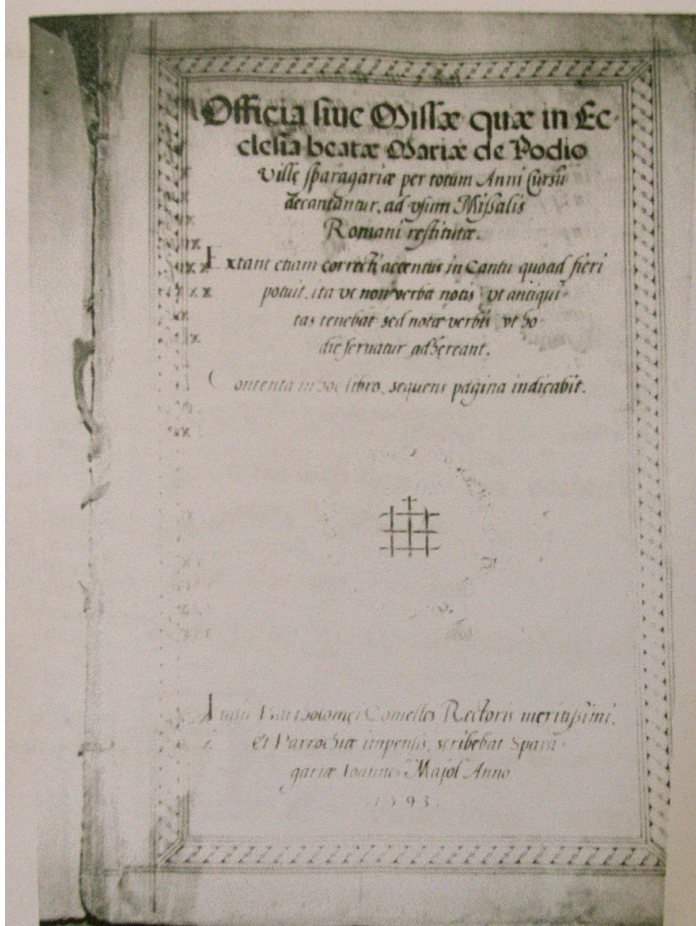 Officia siue Missæ quæ in Ec-
clesia beatæ Mariæ de Podio
Ville sparagariæ per totum Anni cursū
decantantur, ad vsum Missalis
Romani restitutæ.
Extant etiam correcti accentus in Cantu quoad fieri
potuit, ita vt non verba notis vt antiqui-
tas tenebat sed notæ verbis vt ho-
die seruatur adhereant.
Contenta in hoc libro, sequens pagina indicabit.
Iussu Bartholomei Comelles Rectoris meritissimi,
et Parrochiæ impensis, scribebat Spara-
gariæ Ioannes Majol Anno
1593.